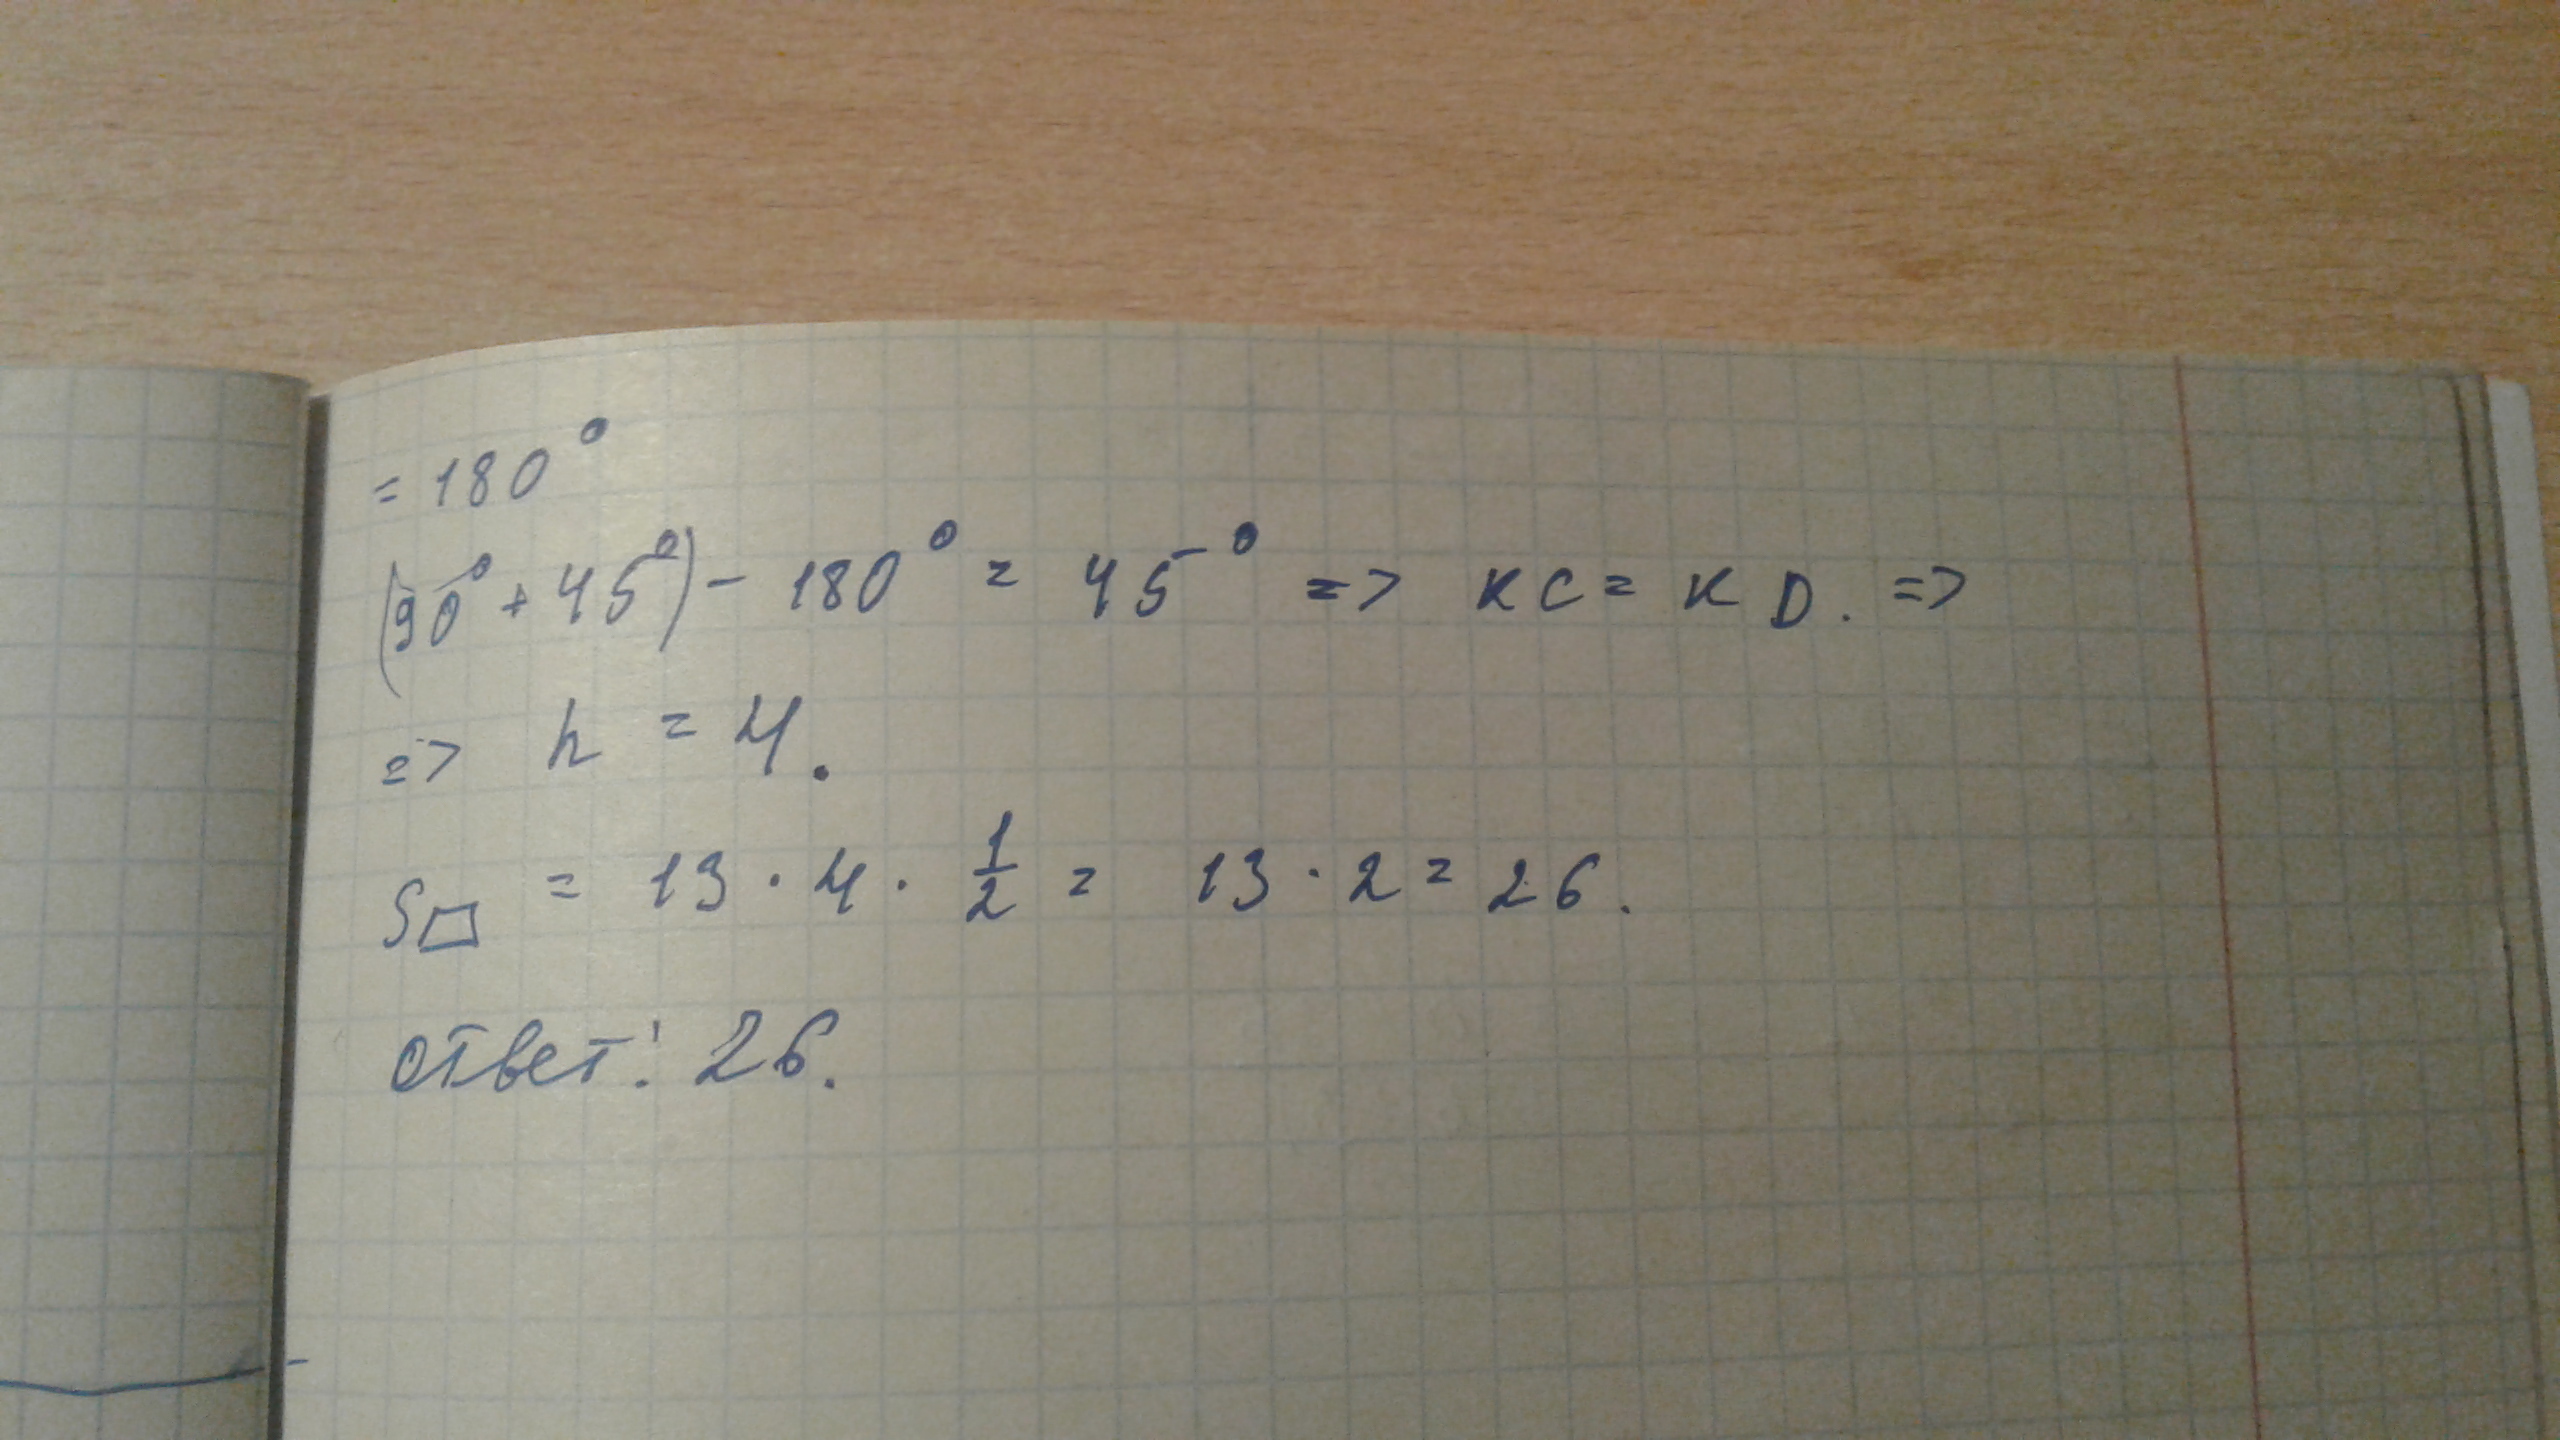 = 180°
(90° + 45°) - 180° = 45° => KC = KD. =>
=> h = 4.
S▱ = 13 · 4 · 1/2 = 13 · 2 = 26.
ответ: 26.